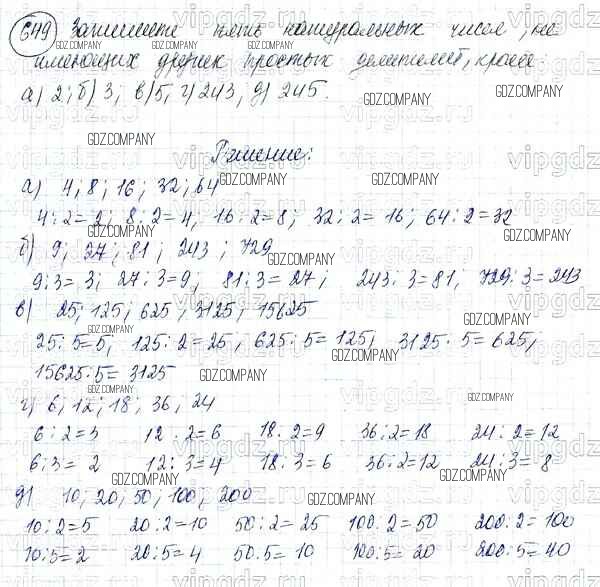 649 Запишите пять натуральных чисел, не
имеющих других простых делителей, кроме:
а) 2; б) 3; в) 5; г) 2 и 3; д) 2 и 5.
Решение:
а) 4; 8; 16; 32; 64
4:2=2; 8:2=4; 16:2=8; 32:2=16; 64:2=32
б) 9; 27; 81; 243; 729
9:3=3; 27:3=9; 81:3=27; 243:3=81; 729:3=243
в) 25; 125; 625; 3125; 15625
25:5=5; 125:2=25; 625:5=125; 3125:5=625;
15625:5=3125
г) 6; 12; 18; 36; 24
6:2=3 12:2=6 18:2=9 36:2=18 24:2=12
6:3=2 12:3=4 18:3=6 36:2=12 24:3=8
д) 10; 20; 50; 100; 200
10:2=5 20:2=10 50:2=25 100:2=50 200:2=100
10:5=2 20:5=4 50:5=10 100:5=20 200:5=40